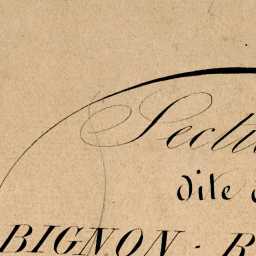 Secti
dite
BIGNON · R